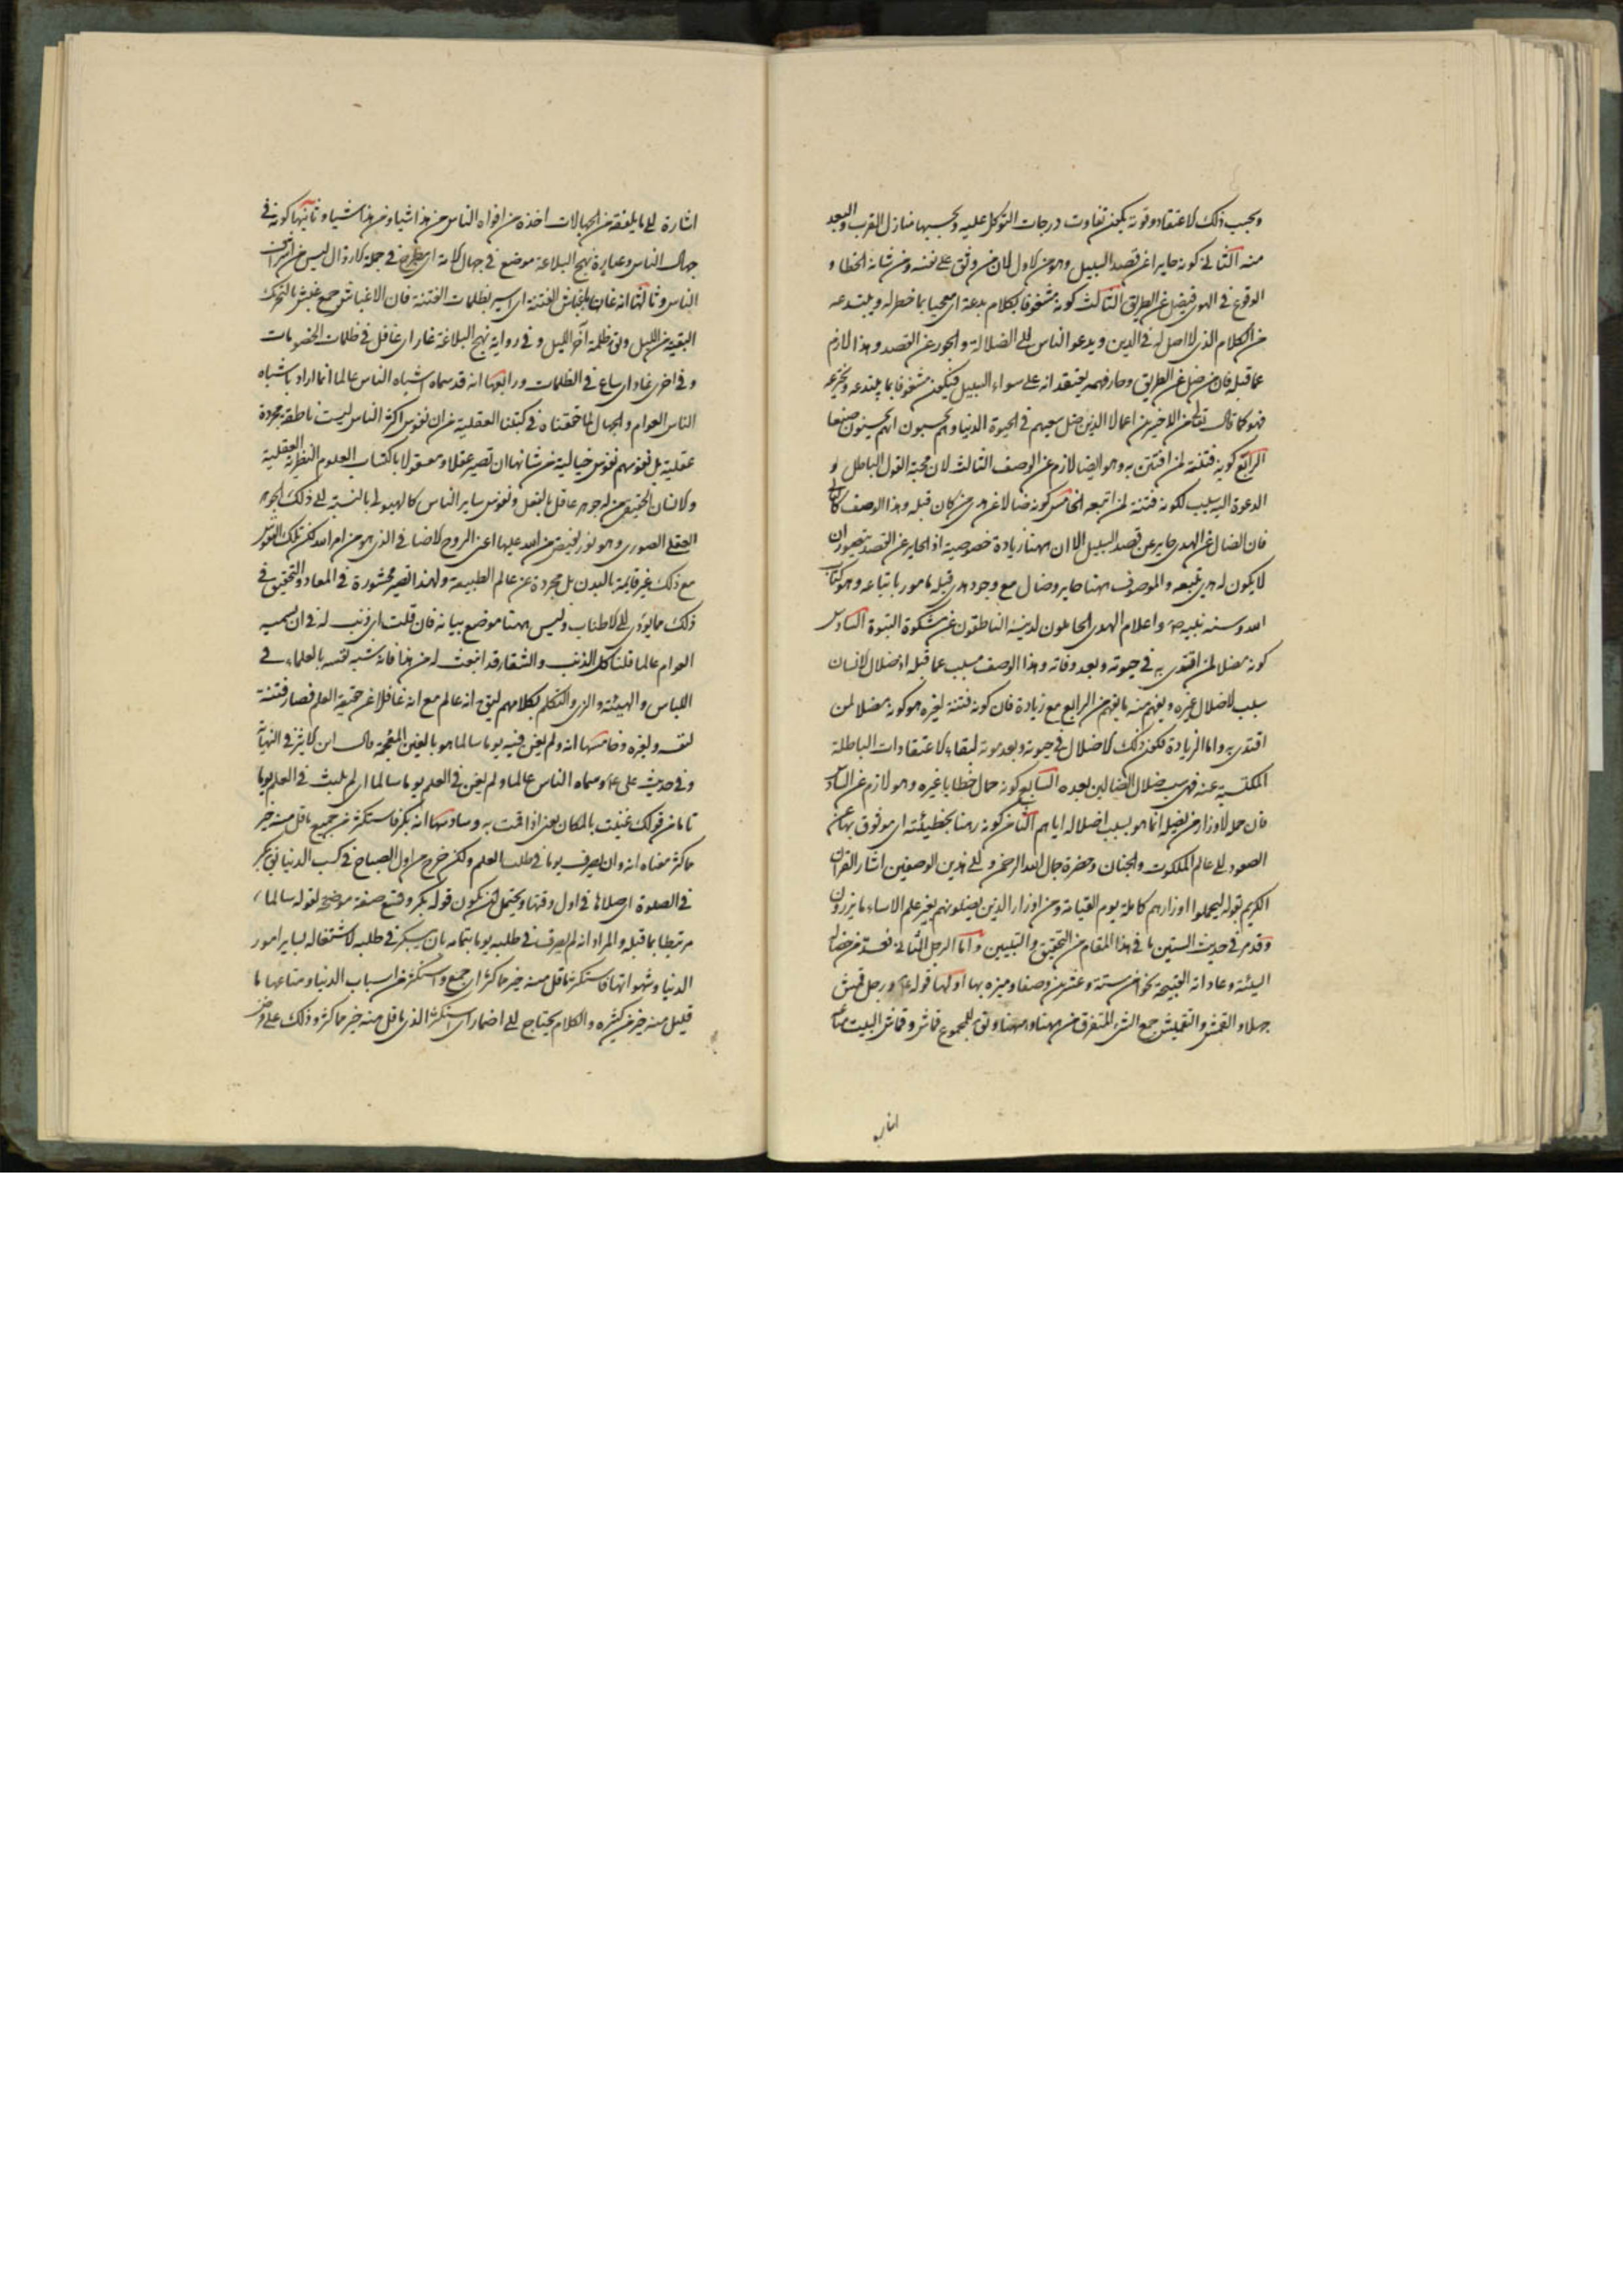 وبحسب ذلك الاعتقاد وقوته يكون تفاوت درجات التوكل عليه وبحسبها منازل القرب والبعد
منه الثاني كونه جايرا عن قصد السبيل وهو من الاول لان من وثق على نفسه ومن شانه الخطا و
الوقوع في الهوى فيضل عن الطريق الثالث كونه مشغوفا بكلام بدعة اى معجبا بما خطر له ويبتدعه
من الكلام الذى لا اصل له في الدين ويدعو الناس الى الضلالة والجور عن القصد وهذا لازم
عما قبله فان من ضل عن الطريق وجار فهمه يعتقد انه على سواء السبيل فيكون مشغوفا بما يبتدعه ويخترعه
فهو كما قال تعالى من الاخسرين اعمالا الذين ضل سعيهم في الحيوة الدنيا وهم يحسبون انهم يحسنون صنعا
الرابع كونه فتنة لمن افتتن به وهو ايضا لازم عن الوصف الثالث لان محبة القول الباطل و
الدعوة اليه سبب لكونه فتنة لمن اتبعه الخامس كونه ضالا عن هدى من كان قبله وهذا الوصف كالثاني
فان الضال عن الهدى جاير عن قصد السبيل الا ان ههنا زيادة خصوصية اذ الجاير عن القصد يتصور ان
لا يكون له هدى يتبعه والموصوف ههنا جاير وضال مع وجود هدى قبله مامور باتباعه وهو كتاب
الله وسنة نبيه ص واعلام الهدى الحاملون لدينه الناطقون عن مشكوة النبوة السادس
كونه مضلا لمن اقتدى به في حيوته وبعد وفاته وهذا الوصف مسبب عما قبله اذ ضلال الانسان
سبب لاضلال غيره ويفهم منه ما يفهم من الرابع مع زيادة فان كونه فتنة لغيره هو كونه مضلا لمن
اقتدى به واما الزيادة فكون ذلك الاضلال في حيوته وبعد موته لبقاء الاعتقادات الباطلة
المكتسبة عنه فهى سبب ضلال الضالين بعده السابع كونه حمال خطايا غيره وهو لازم عن السادس
فان حمله لاوزار من يضله انما هو بسبب اضلاله اياهم الثامن كونه رهنا بخطيئته اى موثوق بها عن
الصعود الى عالم الملكوت والجنان وحضرة جمال الله الرحمن والى هذين الوصفين اشار القران
الكريم بقوله ليحملوا اوزارهم كاملة يوم القيامة ومن اوزار الذين يضلونهم بغير علم الا ساء ما يزرون
وقد مر في حديث الستين ما في هذا المقام من التحقيق والتبيين واما الرجل الثاني فعد من خصاله
السيئة وعاداته القبيحة نحوا من ستة وعشرين وصفا وميزه بها اولها قوله ع ورجل قمش
جهلا والقمش والتقميش جمع الشىء المتفرق من ههنا وههنا ويق للمجموع قماش وقماش البيت متاعه
اشارة الى ما يلفقه من الجهالات اخذه من افواه الناس من هذا شيئا ومن هذا شيئا وثانيها كونه في
جهال الناس وعبارة نهج البلاغة موضع في جهال الامة اى مطرح في جملة الارذال ليس من اشراف
الناس وثالثها انه عان باغباش الفتنة اى اسير بظلمات الفتنة فان الاغباش جمع غبش بالتحريك
البقية من الليل ويق ظلمة آخر الليل وفي رواية نهج البلاغة غار اى غافل في ظلمات الخصومات
وفي اخرى غاد اى ساع في الظلمات ورابعها انه قد سماه اشباه الناس عالما انما اراد باشباه
الناس العوام والجهال لما حققناه في كتبنا العقلية من ان نفوس اكثر الناس ليست ناطقة مجردة
عقلية بل نفوسهم نفوس خيالية من شانها ان تصير عقلا ومعقولا باكتساب العلوم النظرية العقلية
والانسان الحقيقى من له جوهر عاقل بالفعل ونفوس ساير الناس كالهيولى بالنسبة الى ذلك الجوهر
العقلى الصورى وهو نور يفيض من الله عليها اعنى الروح الاضافى الذى هو من امر الله لكن تلك النفوس
مع ذلك غير قايمة بالبدن بل مجردة عن عالم الطبيعة ولهذا تصير محشورة في المعاد والتحقيق في
ذلك مما يؤدى الى الاطناب وليس ههنا موضع بيانه فان قلت اى ذنب له في ان يسميه
العوام عالما قلنا كل الذنب والشقاء قد انبعث له من هذا فانه شبه نفسه بالعلماء في
اللباس والهيئة والزى والتكلم بكلامهم ليق انه عالم مع انه غافلا عن حقيقة العلم فصار فتنة
لنفسه ولغيره وخامسها انه ولم يغن فيه يوما سالما هو بالغين المعجمة قال ابن الاثير في النهاية
وفي حديث على ع وسماه الناس عالما ولم يغن في العلم يوما سالما اى لم يلبث في العلم يوما
تاما من قولك غنيت بالمكان يغنى اذا اقمت به وسادسها انه بكر فاستكثر من جميع ما قل منه خير
مما كثر معناه انه وان لم يصرف يوما في طلب العلم ولكن خرج من اول الصباح في كسب الدنيا يق بكر
في الصلوة اى صلاها في اول وقتها ويحتمل ان يكون قوله بكر وقع صفة موضحة لقوله سالما
مرتبطا بما قبله والمراد انه لم يصرف في طلبه يوما بتمامه بان يبكر في طلبه لاشتغاله بساير امور
الدنيا وشهواتها فاستكثر ما قل منه خير مما كثر اى جمع واستكثر من اسباب الدنيا ومتاعها ما
قليل منه خير من كثيره والكلام يحتاج الى اضمار اى استكثر الذى ما قل منه خير مما كثر وذلك على